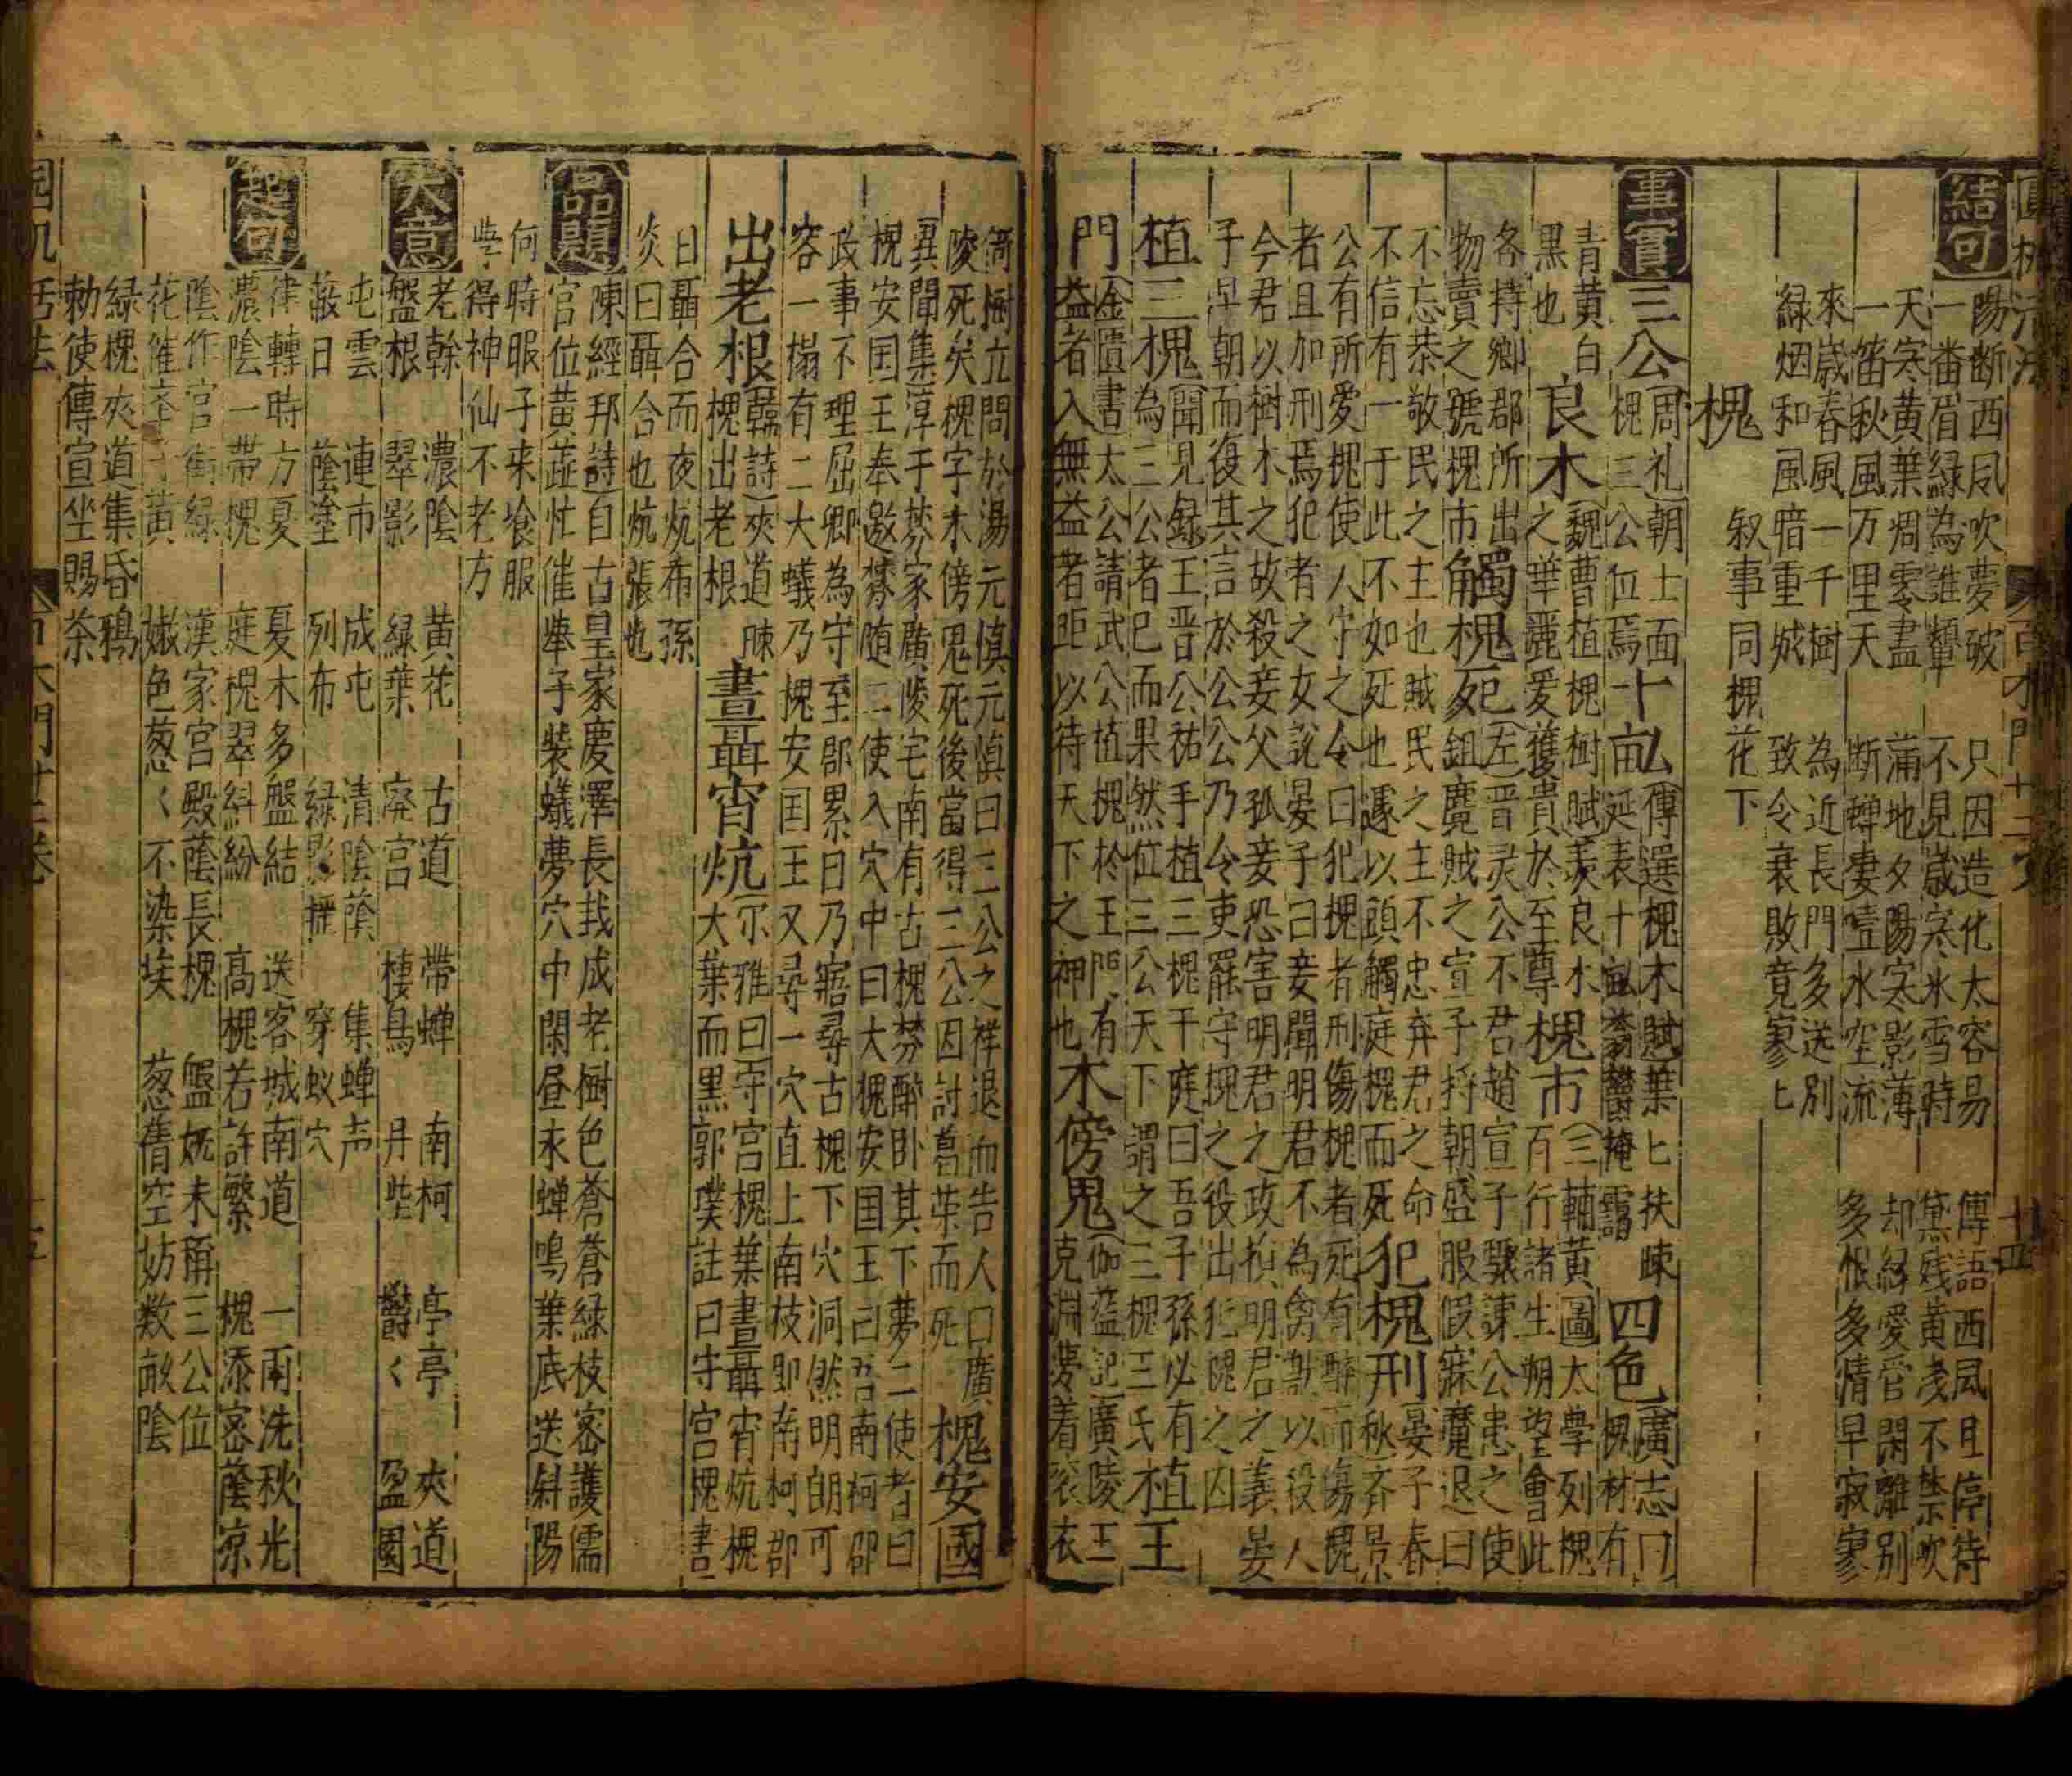 結句
陽断西凨吹夢破　只因造化太容易　傳語西風且停待
一畨眉緑為誰顰　不見歳寒氷雪時　黛殘黄淺不禁吹
天寒黄葉凋零盡　蒲地夕陽寒影薄　却縁愛管閑離别
一笛秋風万里天　断蟬凄壹水空流　多恨多情早寂寥
來歳春風一千樹　為近長門多送别
緑烟和風暗重城　致令衰敗竟寥匕
叙事同槐花下
槐
事實
三公
周礼朝士面
槐三公位焉
十畝
傳選槐木賦葉匕扶疎
延表十畝蓊鬱掩靄
四色
廣志曰
槐材有
青黄白
黒也
良木
魏曹植槐樹賦羨良木
之華麗爰獲貴於至尊
槐市
三輔黄圖太學列槐
百行諸生朔望會此
各持郷郡所出
物賣之號槐市
觸槐死
左晋灵公不君趙宣子驟諌公患之使
鉏麑賊之宣子将朝盛服假寐麑退曰
不忘恭敬民之主也賊民之主不忠弃君之命
不信有一于此不如死也遂以頭觸庭槐而死
犯槐刑
晏子春
秋齐景
公有所愛槐使人守之令曰犯槐者刑傷槐者死有醉而傷槐
者且加刑焉犯者之女説晏子曰妾聞明君不為禽獸以役人
今君以樹木之故殺妾父孤妾恐害明君之政損明君之義晏
子早朝而復其言於公公乃令吏罷守槐之役出犯槐之囚
植三槐
聞見録王晋公祐手植三槐干庭曰吾子孫必有
為三公者已而果然位三公天下謂之三槐王氏
植王
門
金匱書太公請武公植槐於王門有
益者入無益者距以待天下之神也
木傍鬼
伽藍記廣陵王
克淵夢着衮衣
倚樹立問於湯元慎元慎曰三公之祥退而告人曰廣
陵死矣槐字木傍鬼死後當得三公因討葛荣而死
槐安國
異聞集淳于棼家廣陵宅南有古槐棼醉卧其下夢二使者曰
槐安囯王奉邀棼随二使入穴中曰大槐安囯王曰吾南柯郡
政事不理屈卿為守至郡累日乃寤尋古槐下穴洞然明朗可
容一榻有二大蟻乃槐安囯王又尋一穴直上南枝即南柯郡
出老根
韓詩夾道疎
槐出老根
晝聶宵炕
尔雅曰守宫槐葉晝聶宵炕槐
大葉而黒郭璞註曰守宫槐晝
日聶合而夜炕布孫
炎曰聶合也炕張也
品題
陳經邦詩自古皇家慶澤長栽成老樹色蒼蒼緑枝密護儒
官位黄蕋忙催舉子裝蟻夢穴中閑昼永蟬鳴葉底送斜陽
何時暇子来飡服
學得神仙不老方
大意
老幹　濃陰　黄花　古道　帶蟬　南柯　亭亭　夾道
盤根　翠影　緑葉　廃宫　棲鳥　丹墀　鬱〱　盈園
屯雲　連市　成屯　清陰蔭　集蟬声
蔽日　蔭塗　列布　緑影揺　穿蚁穴
起句
律轉時方夏　夏木多盤結　送客城南道　一雨洗秋光
濃陰一帶槐　庭槐翠糾紛　高槐若許繁　槐添密蔭凉
陰作宫街緑　漢家宫殿蔭長槐　盤嫵未稱三公位
花催舉子黄　嫩色葱〱不染埃　葱蒨空妨数畝陰
緑槐夾道集昏鴉
勅使傳宣坐賜茶